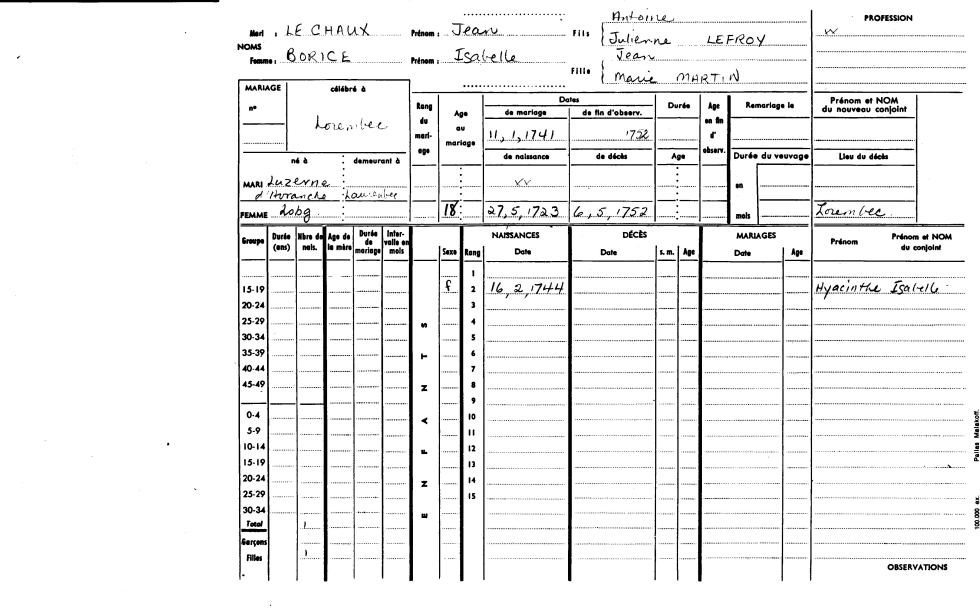 Antoine
PROFESSION
Mari : LE CHAUX Prénom : Jean Fils Julienne LEFROY
NOMS
Femme : BORICE Prénom : Isabelle Fille Jean
Marie MARTIN
MARIAGE célébré à
n°
Lorembec
Rang du mariage
Age au mariage
Dates
de mariage de fin d'observ.
11, 1, 1741 1752
Durée
Age en fin d' observ.
Remariage le
Prénom et NOM du nouveau conjoint
né à demeurant à
de naissance de décès Age
Durée du veuvage
Lieu du décès
MARI Luzerne
d'Avranche
en
FEMME Lobg 18 27, 5, 1723 6, 5, 1752 mois Lorembec
Groupe Durée (ans) Nbre de nais. Age de la mère Durée de mariage Intervalle en mois
ENFANTS
Sexe Rang NAISSANCES Date DÉCÈS Date s. m. Age MARIAGES Date Age Prénom Prénom et NOM du conjoint
1
15-19 f 2 16, 2, 1744 Hyacinthe Isabelle
20-24 3
25-29 4
30-34 5
35-39 6
40-44 7
45-49 8
9
0-4 10
5-9 11
10-14 12
15-19 13
20-24 14
25-29 15
30-34
Total 1
Garçons
Filles 1
OBSERVATIONS
100.000 ex.